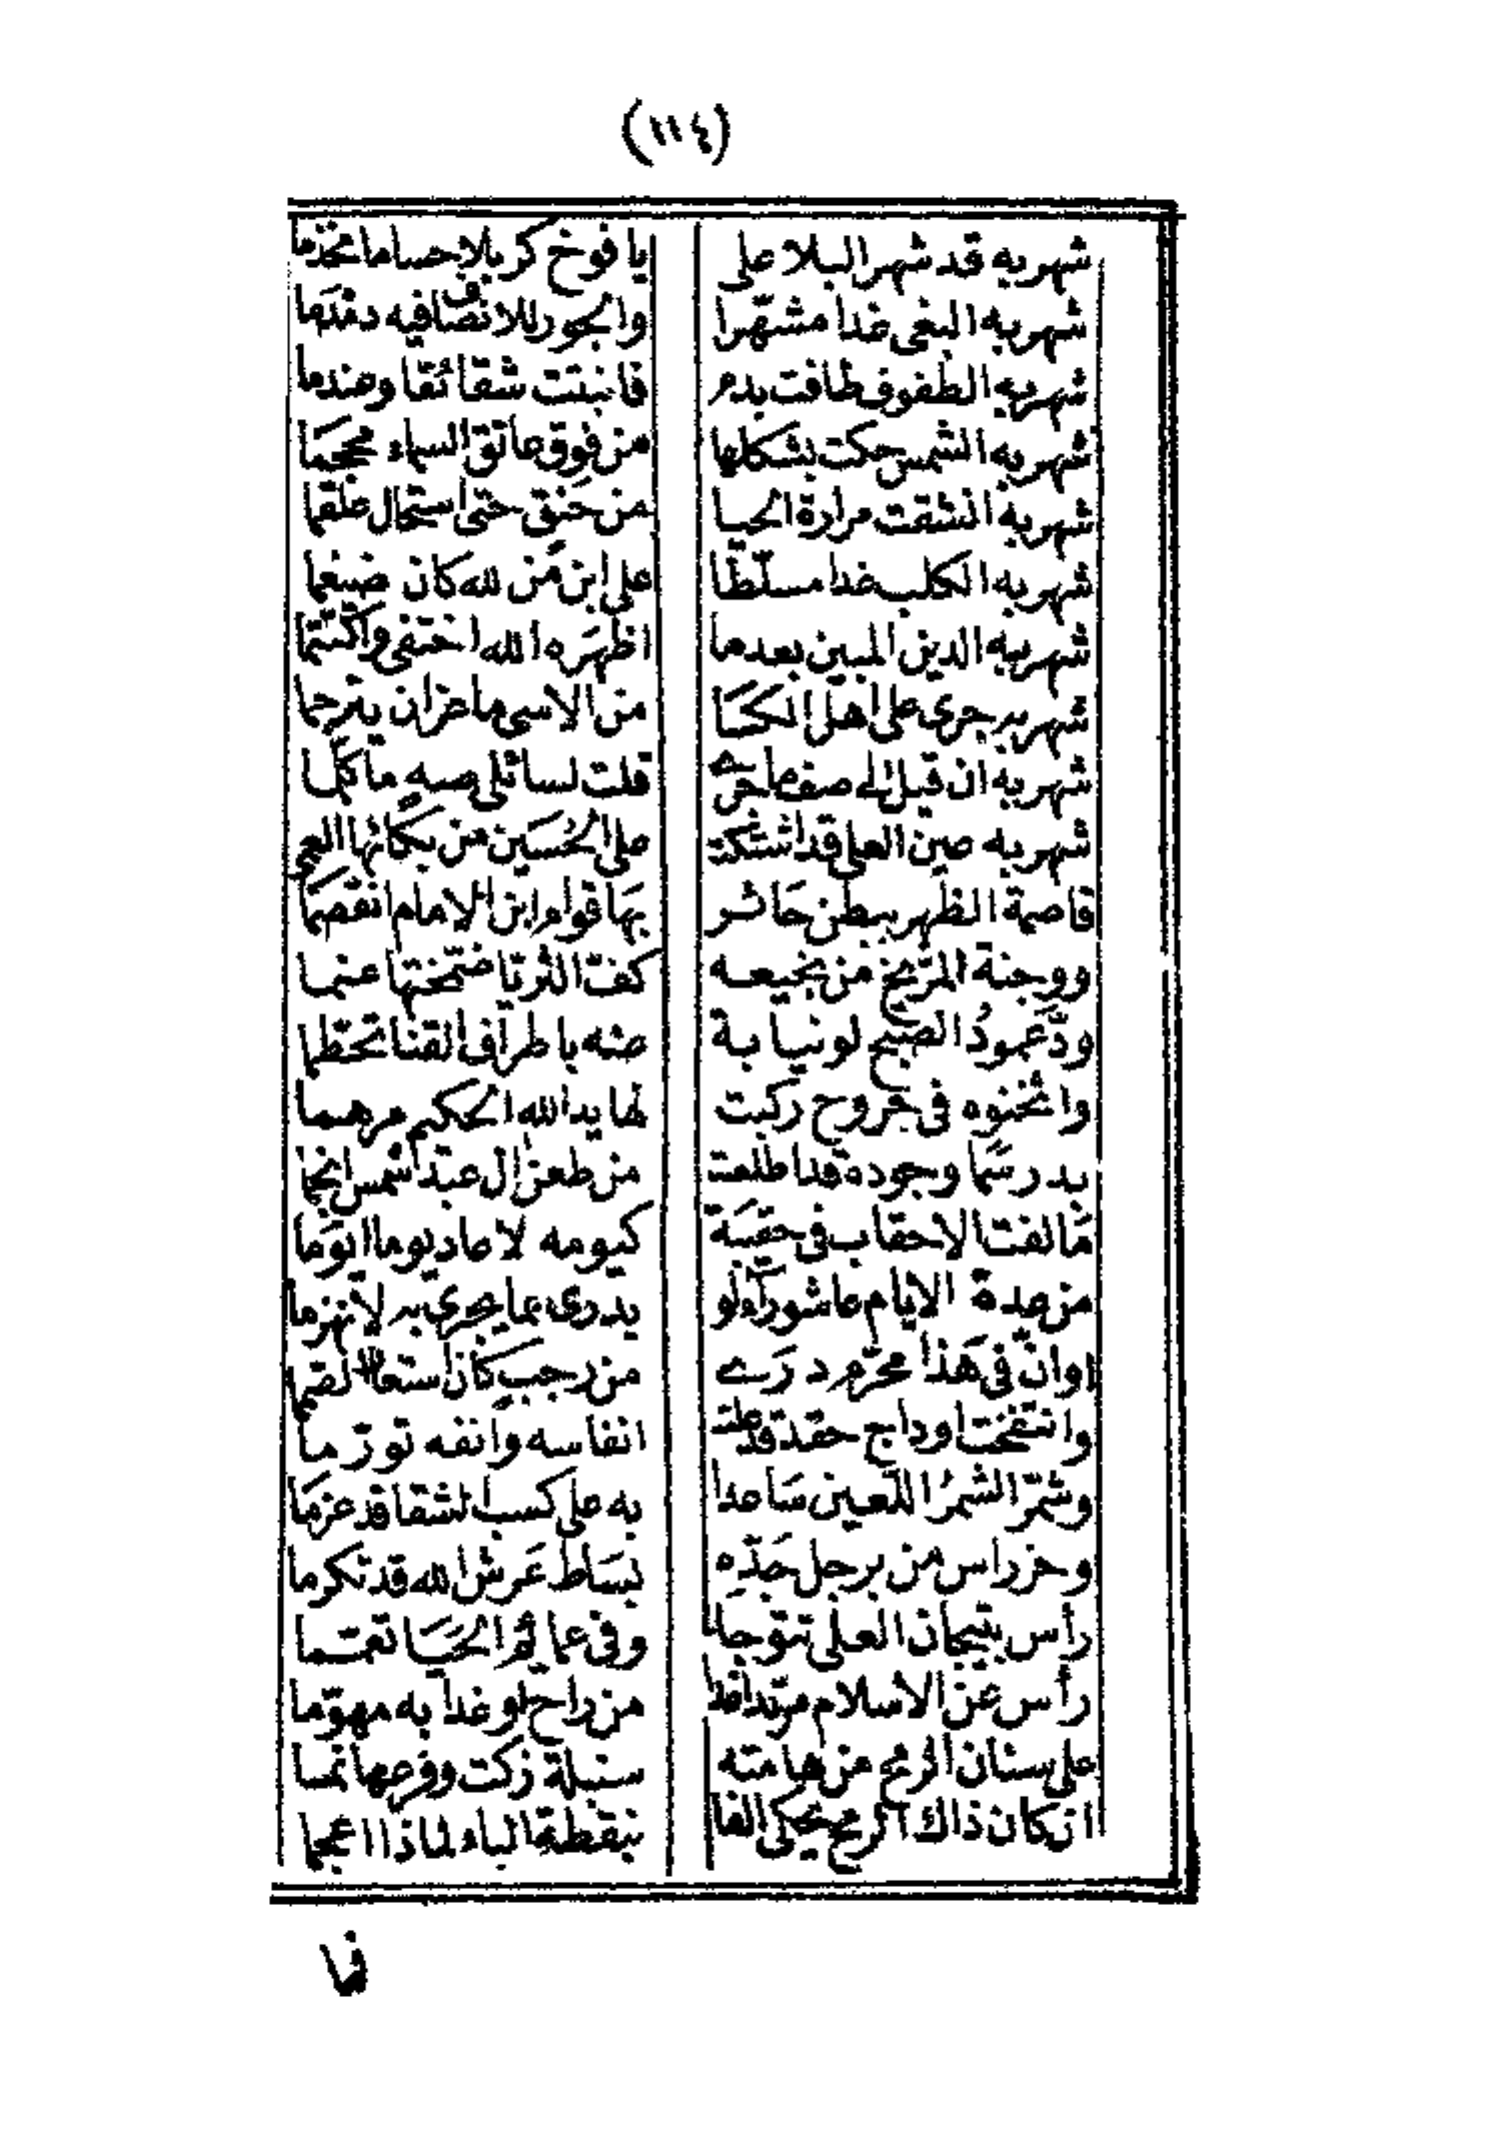 (١١٤)
شهر به قد شهر البلا على يافوخ كربلا حساما مخذما
شهر به البغى غدا مشهّرا والجور للانصاف فيه دغدما
شهر به الطفوف طافت بدم فانبتت شقائقا وعندما
شهر به الشمس حكت بشكلها من فوق عاتق السماء محجما
شهر به انشقت مرارة الحيا من حنق حتى استحال علقما
شهر به الكلب غدا مسلّطا على ابن من لله كان ضيغما
شهر به الدين المبين بعدما اظهره الله اختفى واكتتما
شهر به جرى على اهل الكسا من الاسى ما عز ان يترجما
شهر به ان قيل لى صف ما جرى قلت لسائلى صه ما كلما
شهر به عين العلى قد اشتكت على الحسين من بكائها العمى
قاصمة الظهر ببطن عاشر بها قوام ابن الامام انقصما
ووجنة المرّيخ من نجيعه كفّ الثريا ضمّختها عنما
ودّ عمودُ الصبح لو نيابة عنه باطراف القنا تحطّما
واثخنوه فى جروح ركبت لها يد الله الحكيم مرهما
بدر سما وجوده قد اطلعت من طعن ال عبد شمس انجما
ما لفت الاحقاب فى حقيبة كيومه لا عاد يوما ايوما
من عدة الايام عاشوراء لو يدرى بما يجرى به لانهزما
اوان فى هذا محرّم درى من رجب كان استعار الصمما
وانتفخت اوداج حقد قد علت انفاسه وانفه تورّما
وشمّر الشمرُ اللعين ساعدا به على كسب الشقا قد عزما
وحز راس من برجل جدّه بساط عرش الله قد تكرما
رأس بتيجان العلى تتوجا وفى عمائم الحيا تعمما
رأس عن الاسلام مرتدا غدا من راح او غدا به مهوّما
على سنان الرمح من هامته سنبلة زكت وفرعها نما
ان كان ذاك الرمح يحكى الفا بنقطة الباء لماذا اعجما
فما